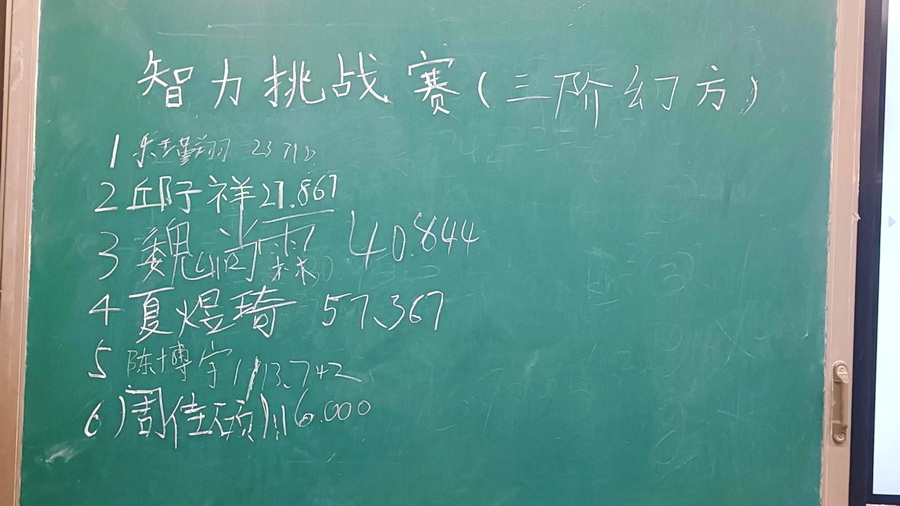 智力挑战赛(三阶幻方)
1 翔 23.712
2 邱子祥 27.867
3 魏 40.844
4 夏煜琦 57.367
5 陈博宇 113.742
6 周佳硕 116.000